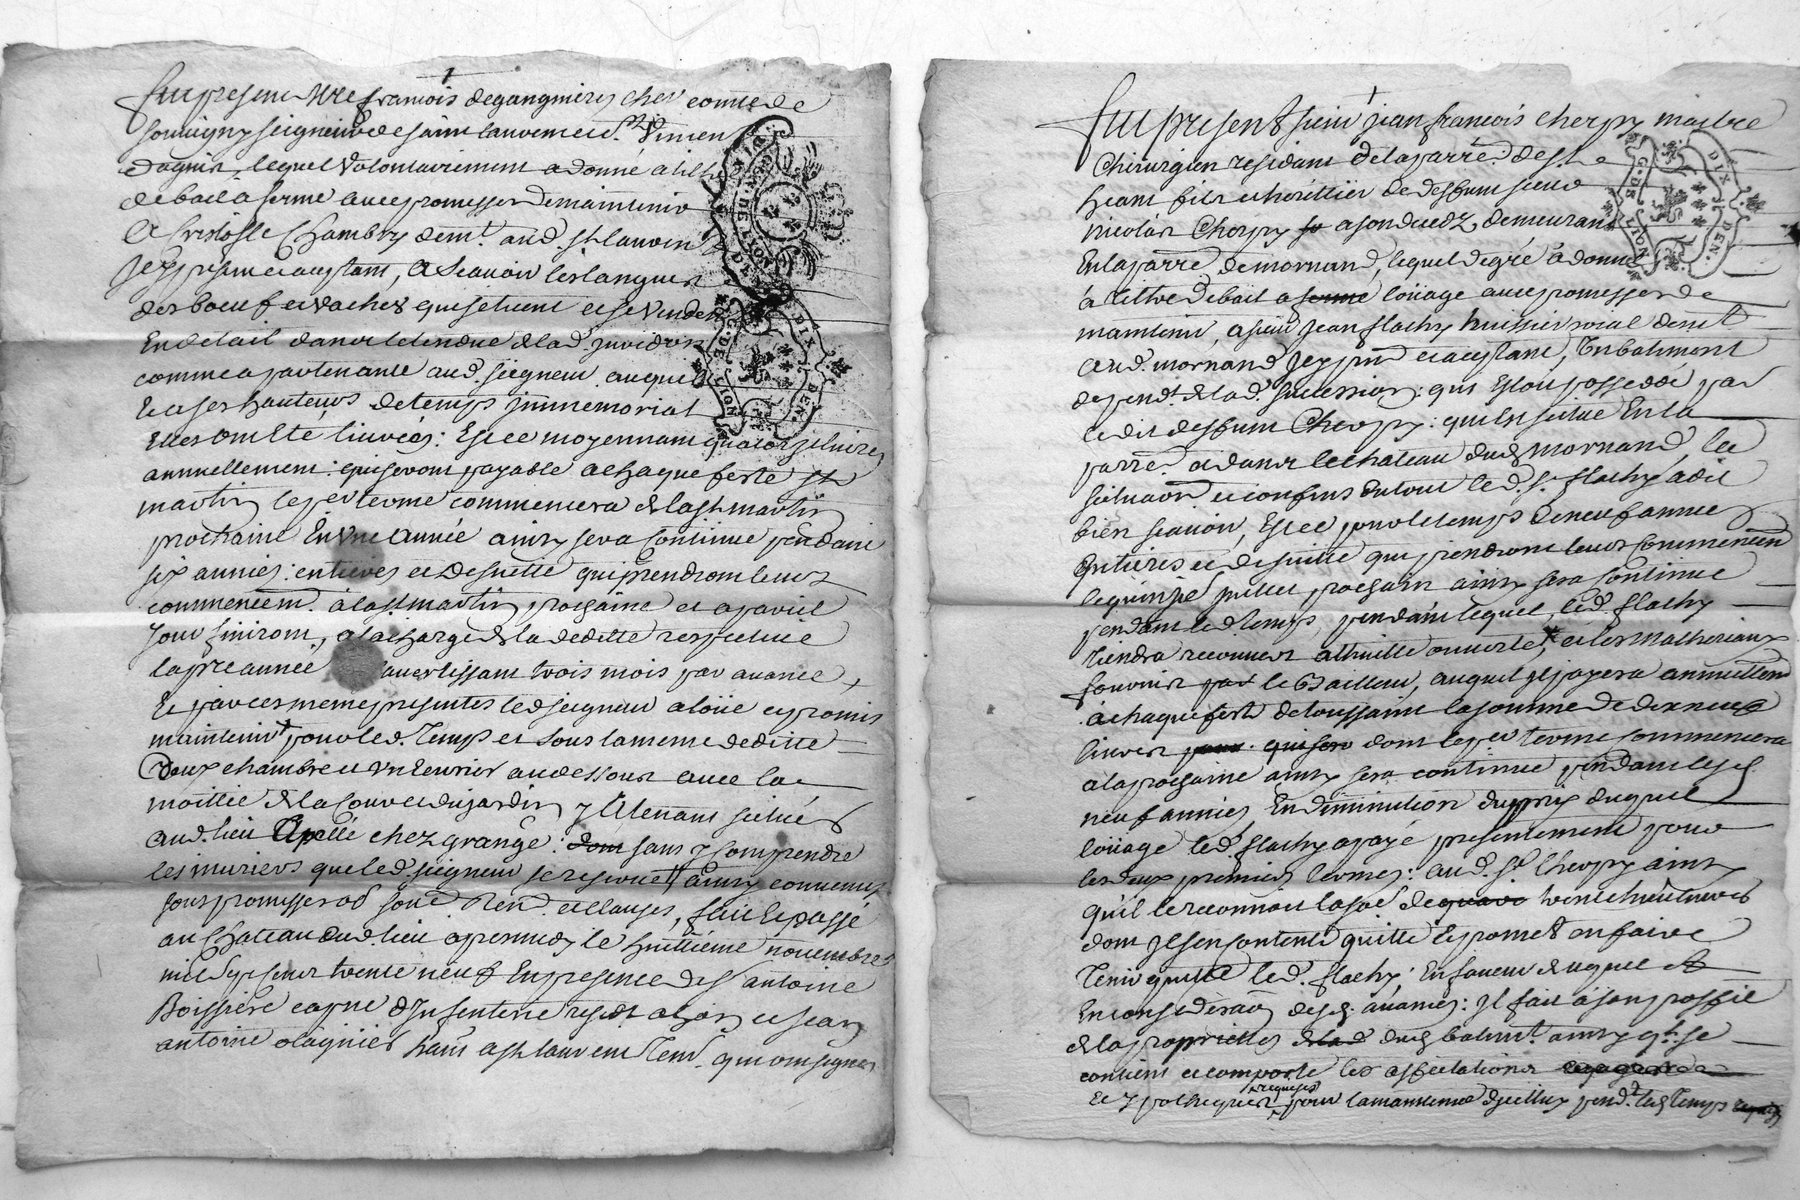 Fut present Mre francois degangnieres cher comte de
souvigny seigneur de saint laurent et
dagnis, lequel volontairement a donné a tiltre
de bail a ferme avec promesse de maintenir
A Cristofle Chambry demt. aud. st laurent
Icy present et aceptant, A Scavoir les langues
des boeuf et vaches qui se tuent et se vendent
En detail dans letendue de lad. juridon
comme apartenante aud. seigneur auquel
et a ses hauteurs de temps jmmemorial
Elles ont Eté livrées: Est ce moyennant livres
annuellement: qui seront payable a chaque feste st
martin le per terme commencera de la st martin
prochaine En Une année ainsy sera Continué pendant
six années: entieres et De suitte qui prendront leurs
commencemt. à la st martin prochaine et a pareil
Jour finiront, a la charge de la deditte respective
la pre année avertissant trois mois par avance,
Et par ces meme presentes led seigneur a loüé et promis
maintenir pour led. Temps et sous la meme deditte
Deux chambre et Un Ecurier au dessous avec la
moittié de la Cour et du jardin y Attenant scitués
aud. lieu Apellé chez grange: dont sans y Comprendre
les muriers que led. seigneur se reserve ainsy convenu
sous promisse ob soud. Rend. et clauses, fait et passé
au Chateau dud. lieu apresmidy le huittième novembre
mil sept cent trente neuf En presence de sr antoine
Boissiere capne D'Infenterie residt a lion et jean
antoine olagnier hant a st laurent Tem. qui ont signés
Fut present sieur jean francois cherpy maitre
Chirurgien residant de la parre. de st
heant fils et heritier de deffunt sieur
nicolas Cherpy a son decedz, demeurant
En la parre de mornand, lequel de gré à donné
à tiltre de bail a ferme loüage avec promesse de
maintenir, a sieur jean flachy huissier roial demt
aud. mornand Icy pnt et aceptant, Un batiment
depend. de lad. succession: qui Estoit possedé par
ledit deffunt Cherpy: qui En scitué En la
parre. et dans le chateau dud mornand, les
scituaon et confins du tout led. sr. flachy a dit
bien scavoir, Est ce pour le temps De neuf années
Entieres et de suitte qui prendront leurs Commencemt
le quinze juillet prochain ainsy sera Continué
pendant led. temps, pendant lequel, led. flachy
Tiendra recouvert a thuille ouverte, et les matheriaux
fournir par le Bailleur, auquel il payera annuellemt
à chaque feste de toussaint la somme de dix neuf
livres pour. qui sera dont le per terme commencera
a la prochaine ainsy sera continué pendant lesd
neuf années, En diminution du prix duquel
loüage led. flachy a payé presentement pour
les deux premiers termes: aud. sr Cherpy ainsy
qu'il le reconnoit la soe. de trente huit livres
dont Il sen Contente quitte Et promet en faire
Tenir quitte led. flachy; En faveur duquel
En consideraon desd. avances: Il fait à son proffit
de la proprieté de lad dud. batimt. ainsy ql. se
contient et comporte les affectations
requises
Et ypotheques pour la maintenue d'jcelluy pendt. led. temps